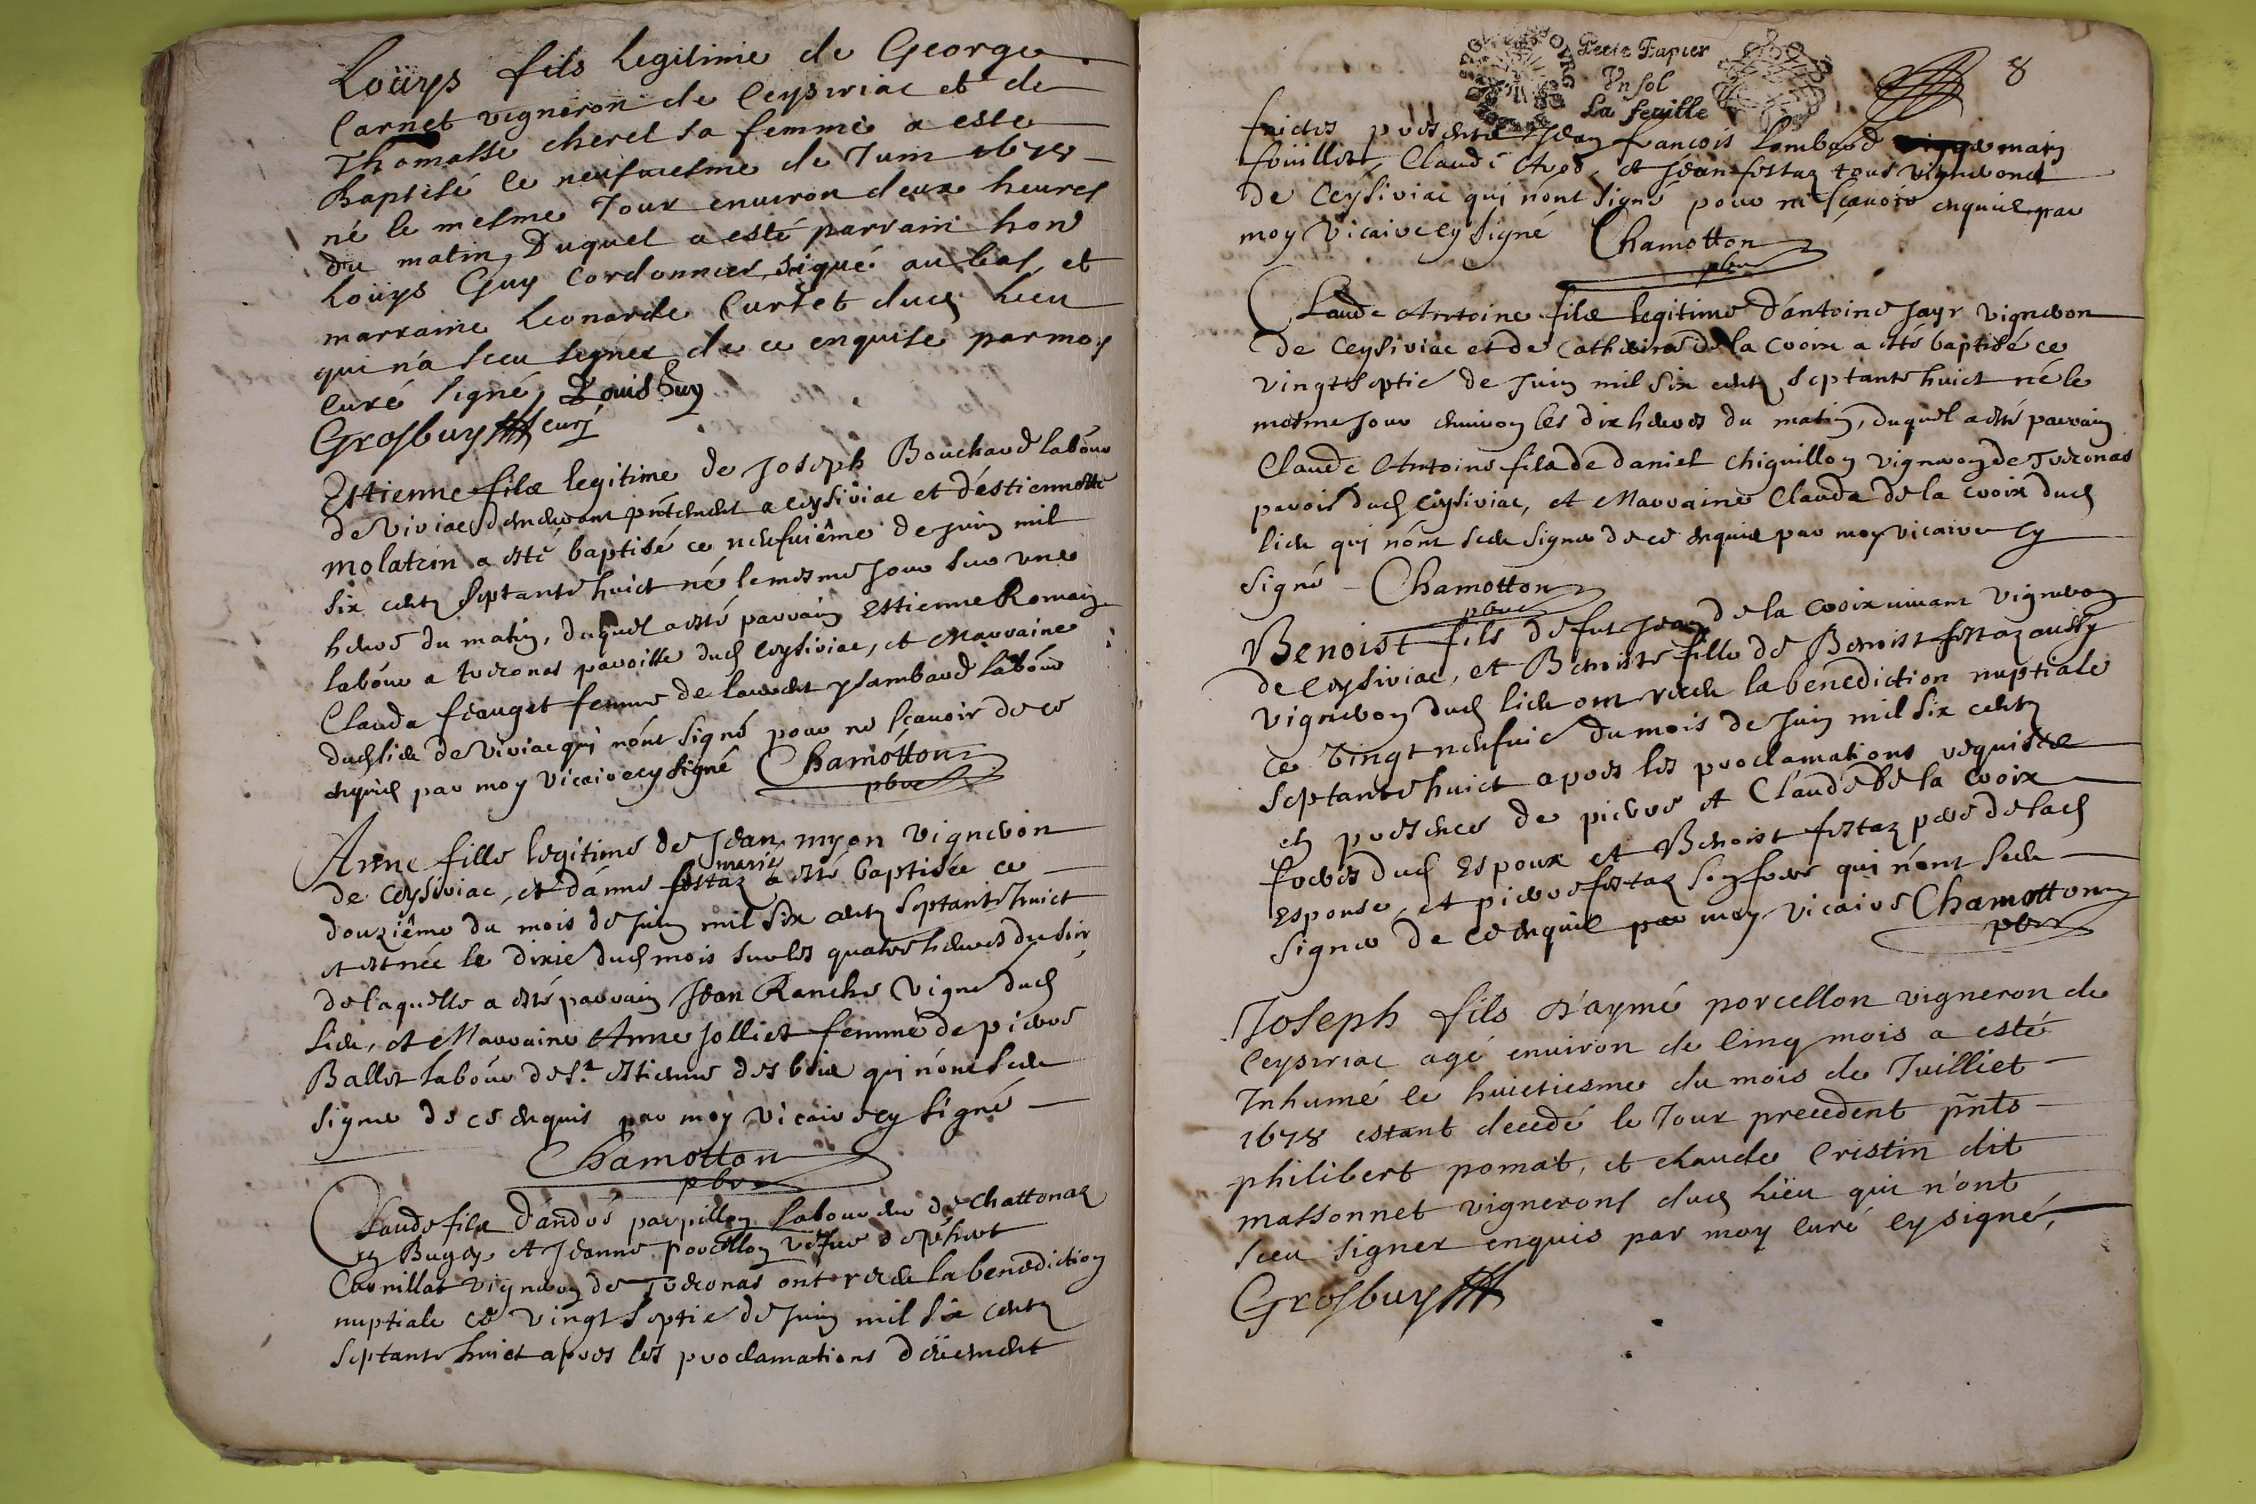 Loüys fils legitime de George
Carnet vigneron de Ceysiriac et de
Thomasse cheret sa femme a este
Baptisé le neufuiesme de Juin 1678
né le mesme Jour enuiron deux heures
du matin, Duquel a esté parrain hon
Loüys Guy Cordonnier, signé au bas, et
marraine Leonarde Curtet dud lieu
qui n'a sceu signer de ce enquise par moy
curé signé, Louis Guy
Grosbuy curé
Estienne filz legitime de Joseph Bouchard labour
de Viriac demeurant pntement a ceysiriac et d'estiennette
molatin a esté baptisé ce neufuiême de juin mil
six cents septante huict né le mesme jour sur une
heure du matin, duquel a esté parrain Estienne Romain
labour a treconas parroisse dud ceysiriac, et Marraine
Clauda feauget femme de laurent ysambard labour
dud lieu de Viriac qui n'ónt signé pour ne sçauoir de ce
enquis par moy vicaire cy signé Chamotton
pbre
Anne fille legitime de Jean myon vigneron
de Ceysiriac, et d'anne festaz mariés a esté baptisée ce
douziême du mois de Juin mil six cents septante huict
et est née le dixie dud mois sur les quatre heures du soir
de laquelle a esté parrain Jean Ranche vigne dud
lieu, et Marraine Anne Jolliet femme de pierre
Ballet labour de st estienne des bois qui n'ónt sceu
signer de ce enquis par moy vicaire cy signé
Chamotton
pbre
Claude filz d'andré parpillon laboureur de Chattonaz
en Bugey, et Jeanne porcellon vefue de
Cornillat vigneron de Treconas ont receu la benediction
nuptiale ce vingt septie de Juin mil six cents
septante huict apres les proclamations deüement
Petit Papier
Vn sol
La feuille
8
faictes presents Jean françois Lombard
foüillet, Claude et Jean festaz tous vignerons
de Ceysiriac qui n'ónt signé pour ne sçauoir enquis par
moy vicaire cy signé Chamotton
pbre
Claude Antoine filz legitime d'ántoine Jayr vigneron
de ceysiriac et de Catherine de la Croix a esté baptisé ce
vingt septie de Juin mil six cents septante huict né le
mesme jour enuiron les dix heures du matin, duquel a esté parrain
Claude Antoine filz de daniel chiquillon vigneron de Treconas
parois dud ceysiriac, et Marraine Clauda de la croix dud
lieu qui n'ónt sceu signer de ce enquis par moy vicaire cy
signé Chamotton
pbre
Benoist fils de fut Jean de la croix viuant vigneron
de ceysiriac, et Benoiste fille de Benoist festaz aussy
vigneron dud lieu ont receu la benediction nuptiale
ce vingt neufuie du mois de Juin mil six cents
septante huict apres les proclamations requises
en presence de pierre et Claude de la croix
freres dud Espoux et Benoist festaz pere de lad
Espouse, et pierre festaz son frere qui n'ont sceu
signer de ce enquis par moy vicaire Chamotton
pbre
Joseph fils d'aymé porcellon vigneron de
Ceysiriac agé enuiron de Cinq mois a esté
Inhumé le huictiesme du mois de Juilliet
1678 estant decedé le Jour precedent pnts
philibert pomat, et claude Cristin dit
massonnet vignerons dud lieu qui n'ont
sceu signer enquis par moy curé cy signé,
Grosbuy